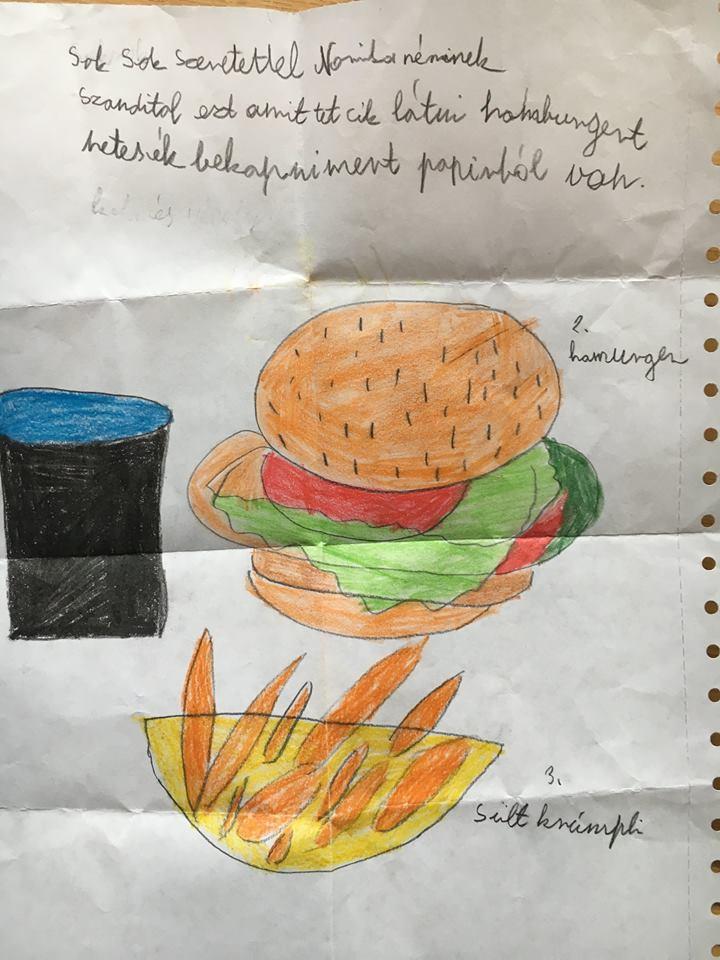 Sok Sok Szeretettel Nomika néninek
Szanditol ezt amit tet cik látni hahaburgert
netesék bekapniment papirból van.
2.
hamurger
3.
Sült krumpli